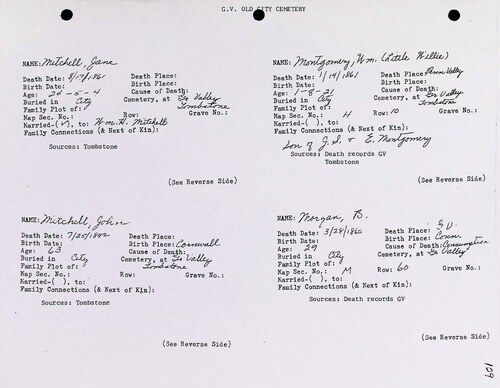 G.V. OLD CITY CEMETERY
NAME: Mitchell, Jane
Death Date: 8/17/1861 Death Place:
Birth Date: Birth Place:
Age: 26-5-4 Cause of Death:
Buried in City Cemetery, at Gr Valley
Family Plot of: Tombstone
Map Sec. No.: Row: Grave No.:
Married-(✓), to: Wm. H. Mitchell
Family Connections (& Next of Kin):
Sources: Tombstone
(See Reverse Side)
NAME: Montgomery, Wm. (Little Willie)
Death Date: 1/14/1861 Death Place: Penn Valley
Birth Date: Birth Place:
Age: 1-8-21 Cause of Death:
Buried in City Cemetery, at Gr Valley
Family Plot of: Tombstone
Map Sec. No.: H Row: 10 Grave No.:
Married-( ), to:
Family Connections (& Next of Kin):
Son of J.S. & E. Montgomery
Sources: Death records GV
Tombstone
(See Reverse Side)
NAME: Mitchell, John
Death Date: 7/25/1882 Death Place:
Birth Date: Birth Place: Cornwall
Age: 63 Cause of Death:
Buried in City Cemetery, at Gr Valley
Family Plot of: Tombstone
Map Sec. No.: Row: Grave No.:
Married-( ), to:
Family Connections (& Next of Kin):
Sources: Tombstone
(See Reverse Side)
NAME: Morgan, B.
Death Date: 3/28/1860 Death Place: G.V.
Birth Date: Birth Place: Conn.
Age: 29 Cause of Death: Consumption
Buried in City Cemetery, at Gr Valley
Family Plot of:
Map Sec. No.: M Row: 60 Grave No.:
Married-( ), to:
Family Connections (& Next of Kin):
Sources: Death records GV
(See Reverse Side)
109